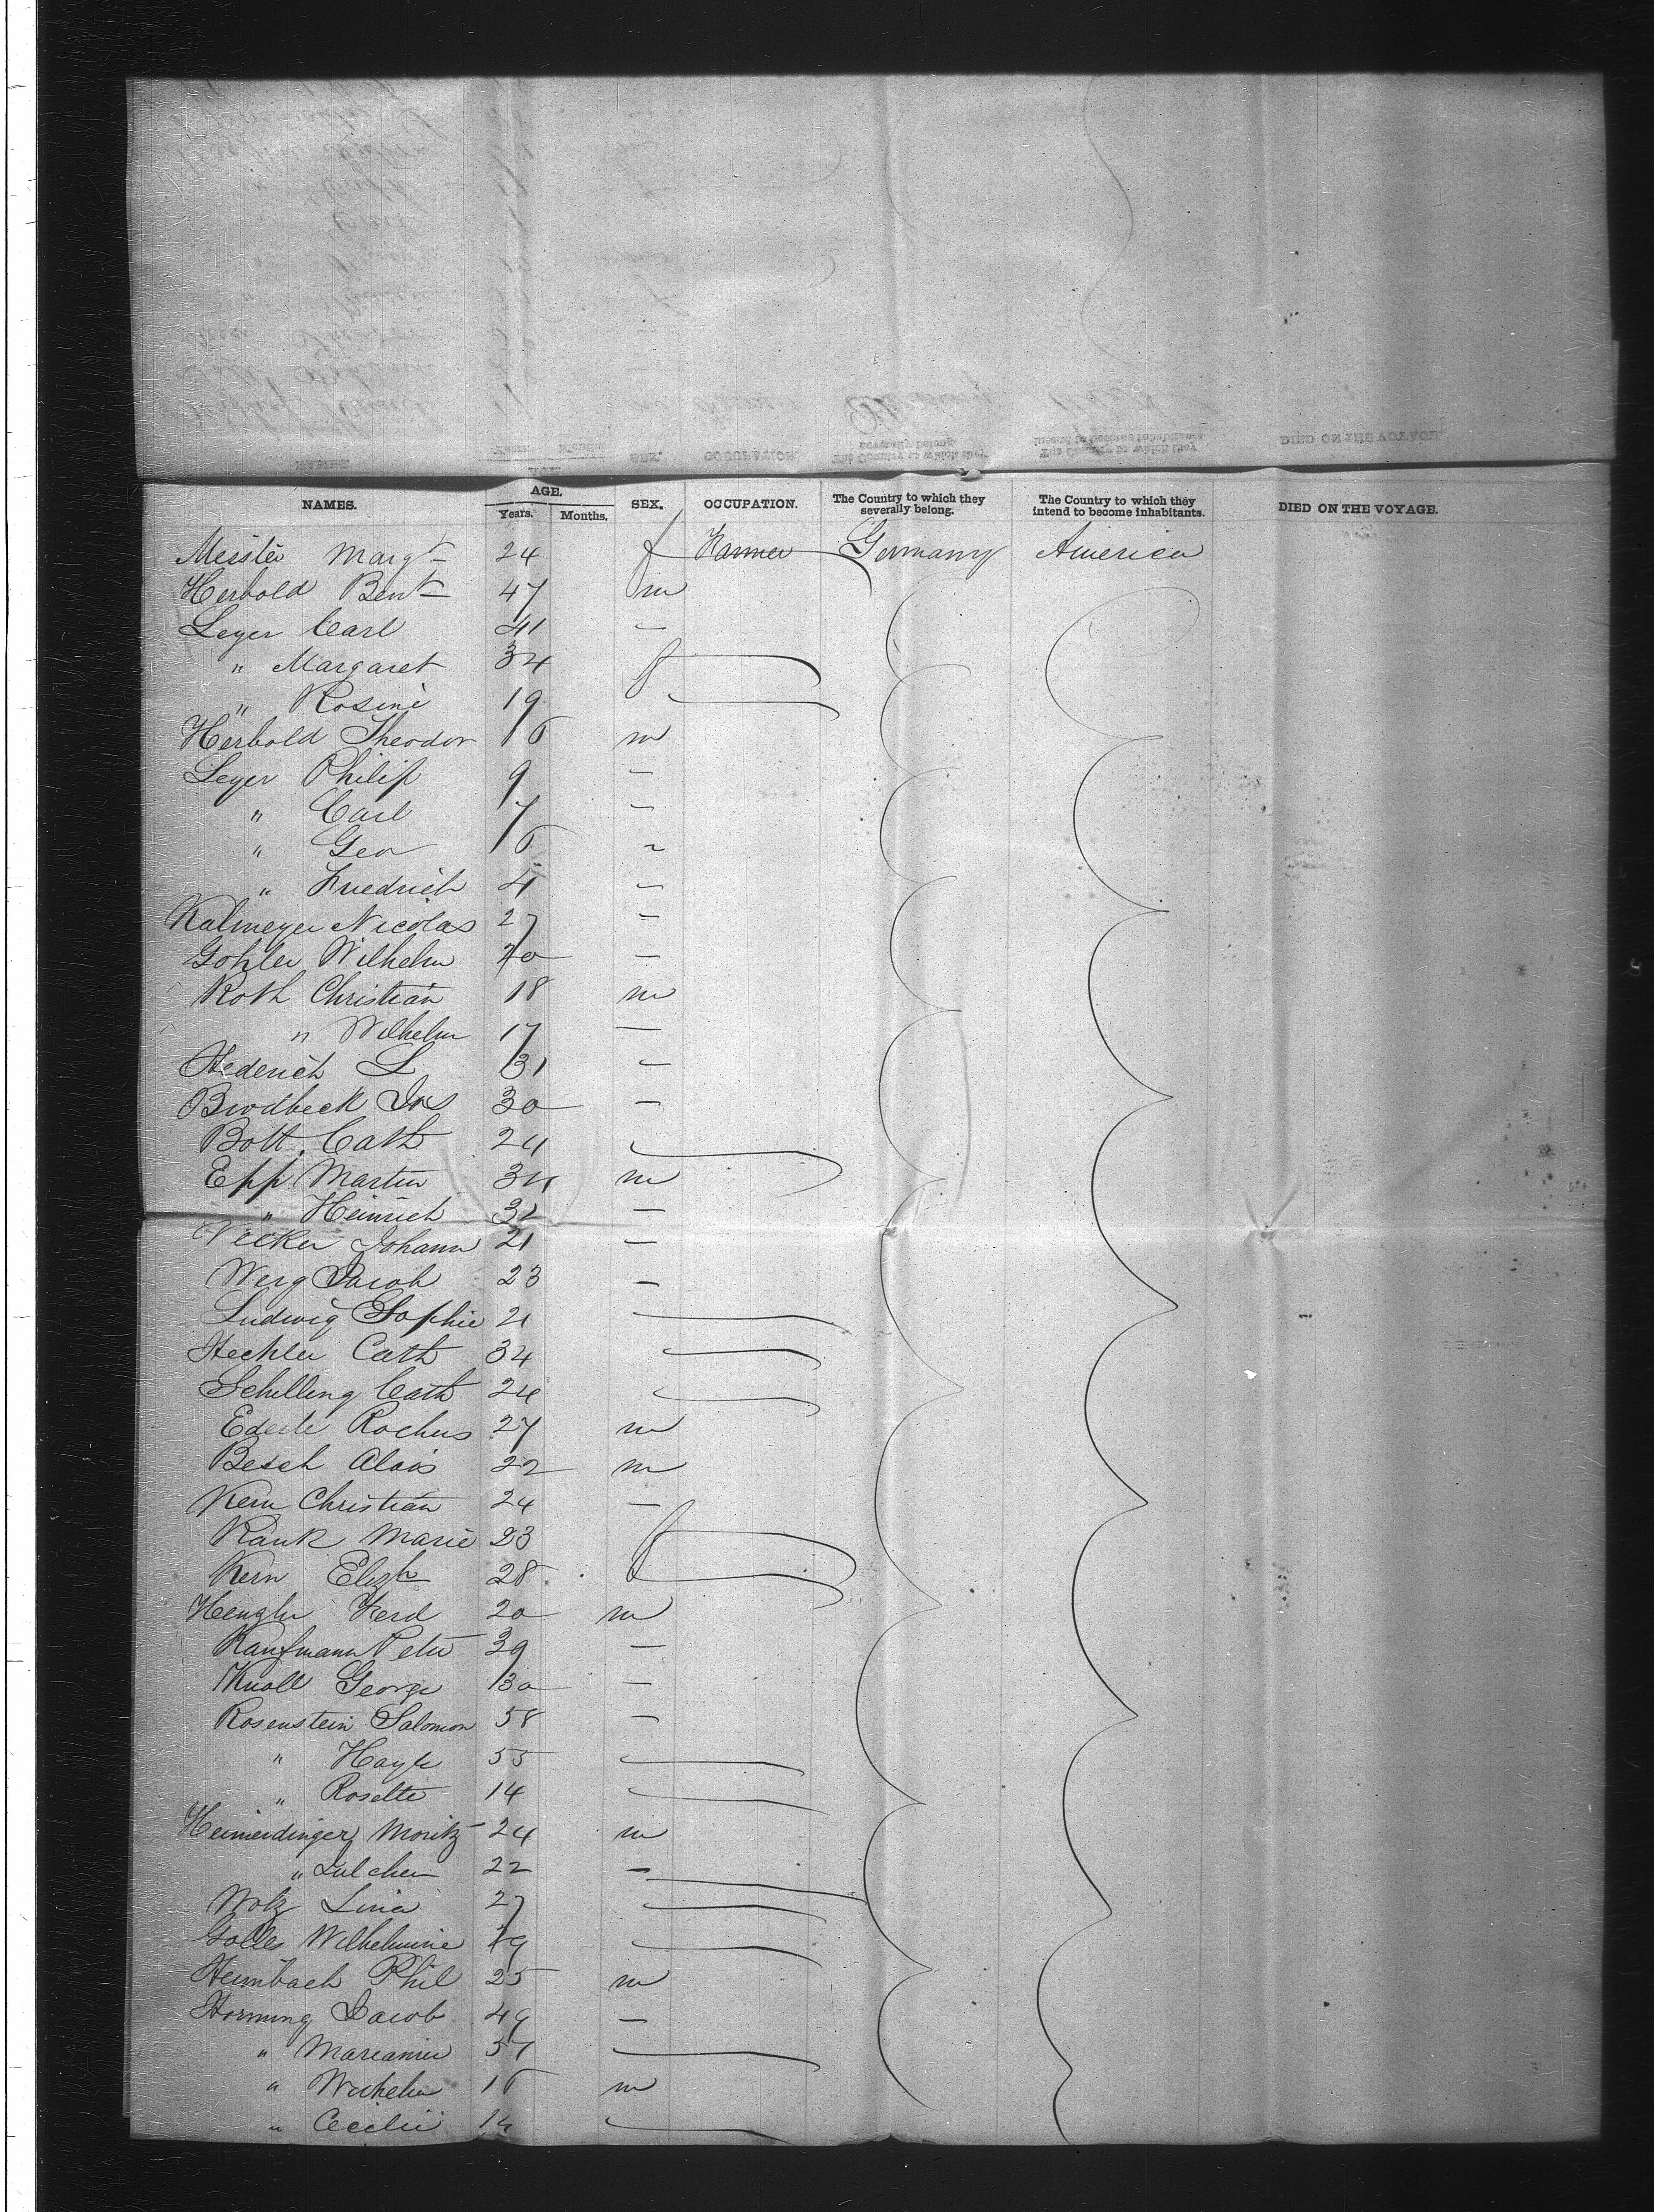 NAMES. AGE. Years. Months. SEX. OCCUPATION. The Country to which they severally belong. The Country to which they intend to become inhabitants. DIED ON THE VOYAGE.
Meister Margt 24 f Farmer Germany America
Herbold Bent 47 m
Leyer Carl 41 —
" Margaret 34 f
" Rosine 19
Herbold Theodor 16 m
Leyer Philip 9 —
" Carl 7 —
" Geo 6 —
" Friedrich 4 —
Kalmeyer Nicolas 27 —
Gohler Wilhelm 20 —
Roth Christian 18 m
" Wilhelm 17 —
Hederich L 31 —
Brodbeck Jos 30 —
Bott Cath 24
Epp Martin 34 m
" Heinrich 32 —
Johann 21 —
Werg Jacob 23 —
Ludwig Sophie 21
Hechler Cath 34
Schilling Cath 24
Ederle Rochus 27 m
Besch Alois 22 m
Kern Christian 24 —
Rauk Marie 23 f
Kern Elizh 28
Hengler Ferd 20 m
Kaufmann Peter 39 —
Knoll George 30 —
Rosenstein Salomon 58 —
" 55
" Rosette 14
Heimerdinger Moritz 24 m
" Julchen 22 —
Lina 27
Golles Wilhelmine 19
Heimbach Phil 25 m
Hornung Jacob 49 —
" 57
" Wilhelm 16 m
" Cecilie 14